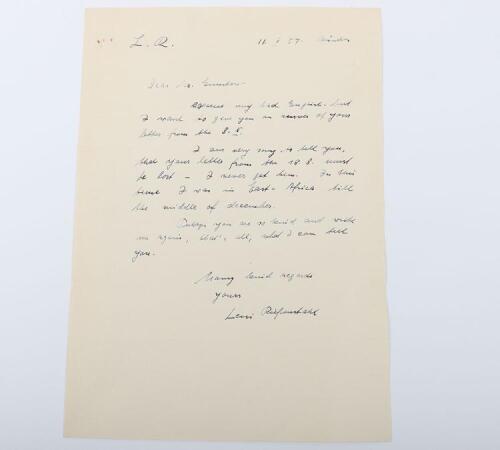 L. R. 11. 57.
Dear Mr.
excuse my bad English, but
I want to give you an answer of your
letter from the 8. I.
I am very sorry to tell you,
that your letter from the 18 8. must
be lost – I never got him. In this
time I was in East-Africa till
the middle of december.
Perhaps you are so kind and write
me again, that's all, what I can tell
you.
Many kind regards
yours
Leni Riefenstahl